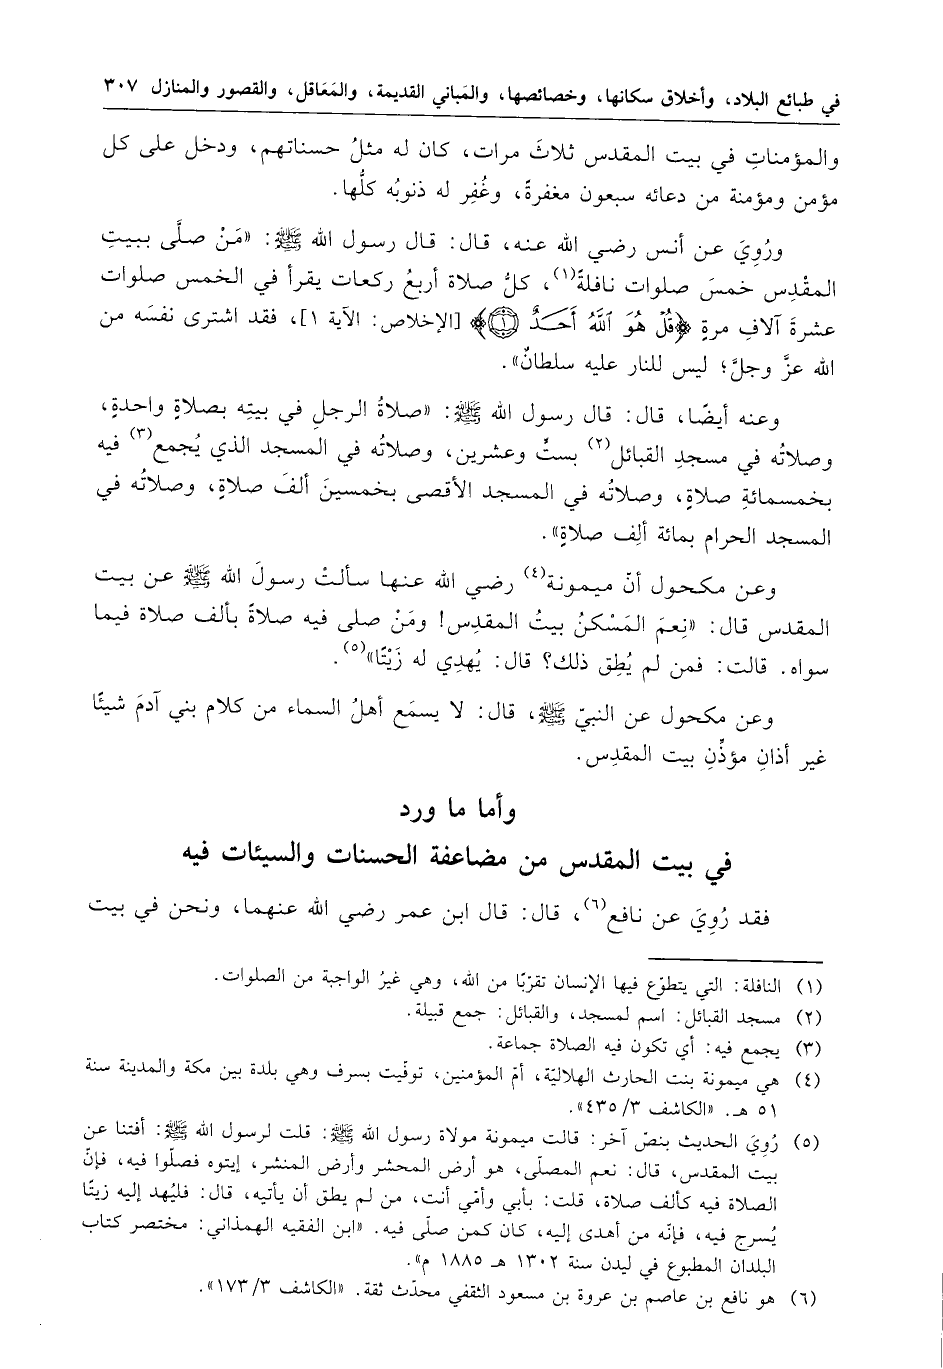 في طبائع البلاد، وأخلاق سكانها، وخصائصها، والمَباني القديمة، والمَعَاقل، والقصور والمنازل ٣٠٧
والمؤمناتِ في بيت المقدس ثلاثَ مرات، كان له مثلُ حسناتهم، ودخل على كل
مؤمن ومؤمنة من دعائه سبعون مغفرةً، وغُفِر له ذنوبُه كلُّها.
ورُوِيَ عن أنس رضي الله عنه، قال: قال رسول الله ﷺ: «مَنْ صلَّى ببيتِ
المقْدِس خمسَ صلوات نافلةً(١)، كلُّ صلاة أربعُ ركعات يقرأ في الخمس صلوات
عشرةَ آلافِ مرةٍ ﴿قُلْ هُوَ ٱللَّهُ أَحَـدٌ ۝١﴾ [الإخلاص: الآية ١]، فقد اشترى نفسَه من
الله عزَّ وجلَّ؛ ليس للنار عليه سلطانٌ».
وعنه أيضًا، قال: قال رسول الله ﷺ: «صلاةُ الرجلِ في بيتِه بصلاةٍ واحدةٍ،
وصلاتُه في مسجدِ القبائل(٢) بستٌ وعشرين، وصلاتُه في المسجد الذي يُجمع(٣) فيه
بخمسمائةِ صلاةٍ، وصلاتُه في المسجد الأقصى بخمسينَ ألفَ صلاةٍ، وصلاتُه في
المسجد الحرام بمائة ألِف صلاةٍ».
وعن مكحول أنّ ميمونة(٤) رضي الله عنها سألتْ رسولَ الله ﷺ عن بيت
المقدس قال: «نِعمَ المَسْكنُ بيتُ المقدِس! ومَنْ صلى فيه صلاةً بألف صلاة فيما
سواه. قالت: فمن لم يُطِق ذلك؟ قال: يُهدِي له زَيْتًا»(٥).
وعن مكحول عن النبيّ ﷺ، قال: لا يسمَع أهلُ السماء من كلام بني آدمَ شيئًا
غير أذانِ مؤذِّنِ بيت المقدِس.
وأما ما ورد
في بيت المقدس من مضاعفة الحسنات والسيئات فيه
فقد رُوِيَ عن نافع(٦)، قال: قال ابن عمر رضي الله عنهما، ونحن في بيت
(١) النافلة: التي يتطوّع فيها الإنسان تقرّبًا من الله، وهي غيرُ الواجبة من الصلوات.
(٢) مسجد القبائل: اسم لمسجد، والقبائل: جمع قبيلة.
(٣) يجمع فيه: أي تكون فيه الصلاة جماعة.
(٤) هي ميمونة بنت الحارث الهلاليّة، أمّ المؤمنين، توفّيت بسرف وهي بلدة بين مكة والمدينة سنة
٥١ هـ. «الكاشف ٣/ ٤٣٥».
(٥) رُوِيَ الحديث بنصّ آخر: قالت ميمونة مولاة رسول الله ﷺ: قلت لرسول الله ﷺ: أفتنا عن
بيت المقدس، قال: نعم المصلّى، هو أرض المحشر وأرض المنشر، إيتوه فصلّوا فيه، فإنّ
الصلاة فيه كألف صلاة، قلت: بأبي وأمّي أنت، من لم يطق أن يأتيه، قال: فليُهد إليه زيتًا
يُسرج فيه، فإنّه من أهدى إليه، كان كمن صلّى فيه. «ابن الفقيه الهمذاني: مختصر كتاب
البلدان المطبوع في ليدن سنة ١٣٠٢ هـ ١٨٨٥ م».
(٦) هو نافع بن عاصم بن عروة بن مسعود الثقفي محدّث ثقة. «الكاشف ٣/ ١٧٣».